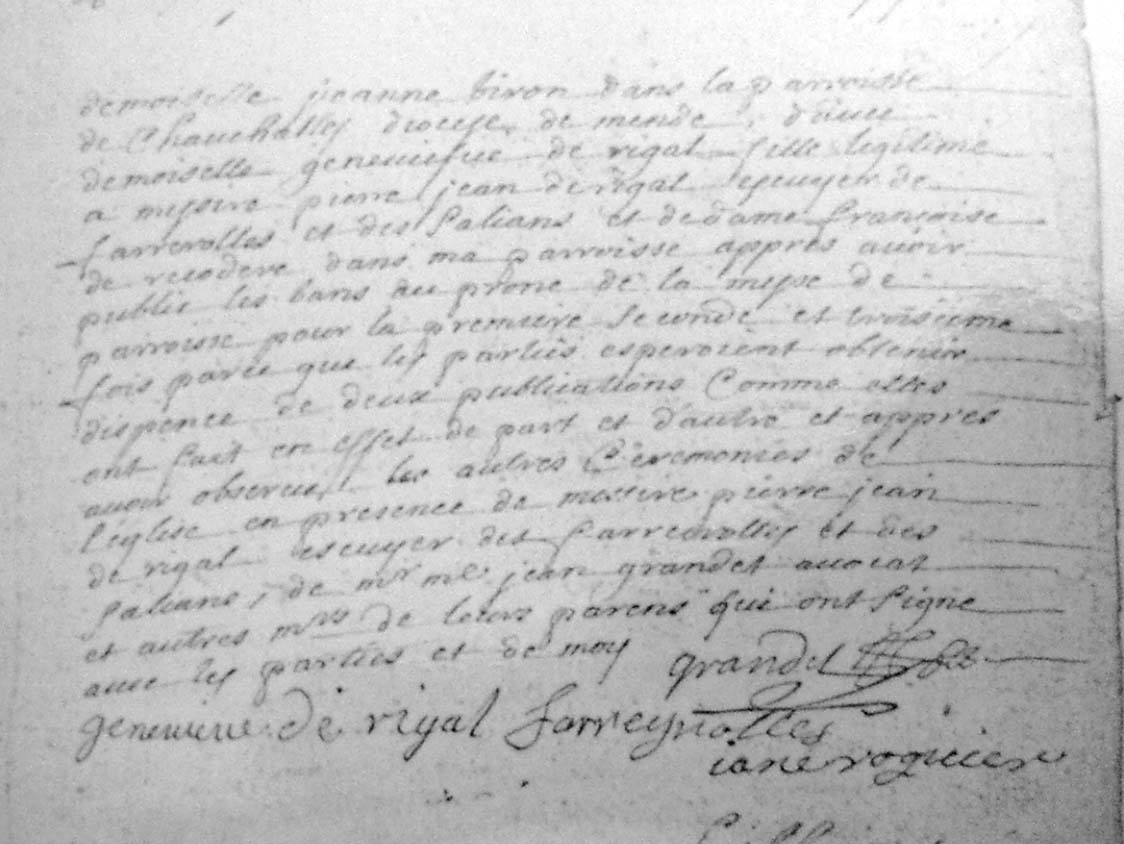 demoiselle jeanne biron dans la parroisse
de Chauchalles diocese de mende, d'une
demoiselle geneviefue de rigal fille legitime
a messire pierre jean de rigal escuyer de
farreyrolles et des salians et de dame françoise
de dans ma parroisse appres avoir
publié les bans au prône de la messe de
parroisse pour la premiere seconde et troisieme
fois parce que les parties esperoient obtenir
dispence de deux publications Comme elles
ont fait en effet de part et d'autre et appres
avoir observé les autres Ceremonies de
l'eglise en presence de messire pierre jean
de rigal escuyer des et des
salians, de mr me jean grandet avocat
et autres mrs de leurs parens qui ont signe
avec les parties et de moy grandet
genevieve de rigal farreyrolles
iane roguier